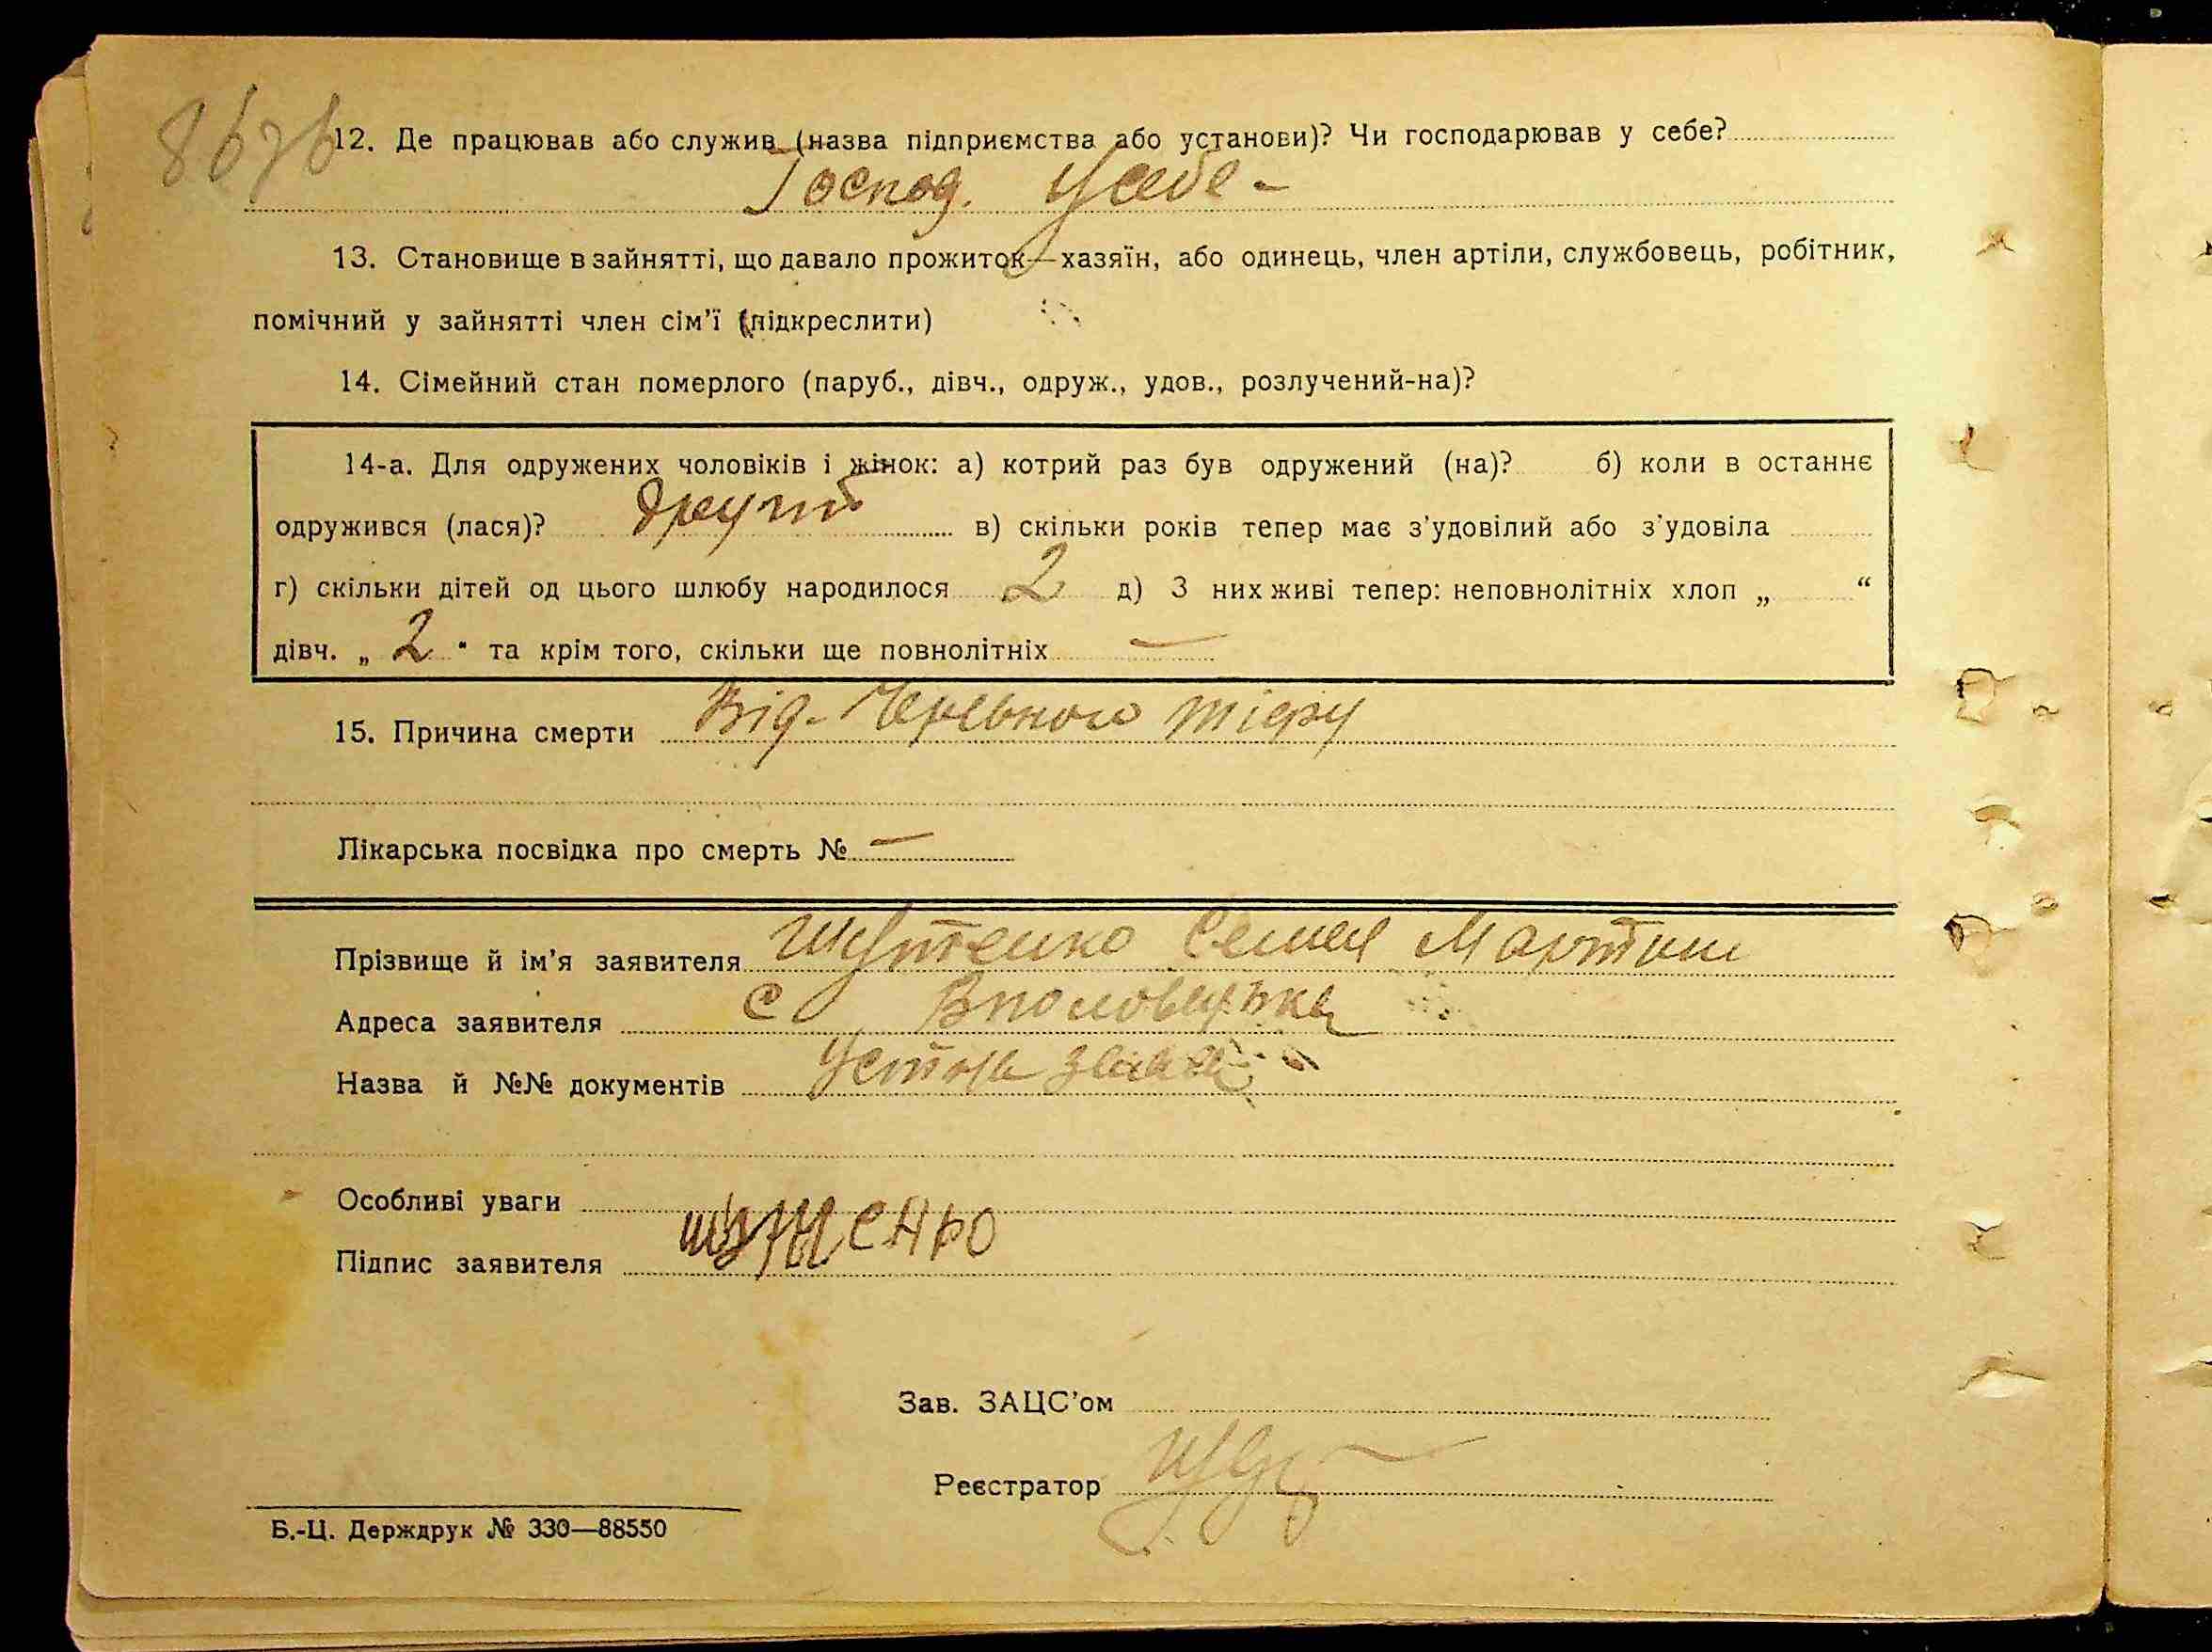 12. Де працював або служив (назва підприємства або установи)? Чи господарював у себе?
Господ. У себе -
13. Становище в зайнятті, що давало прожиток—хазяїн, або одинець, член артіли, службовець, робітник,
помічний у зайнятті член сім'ї (підкреслити)
14. Сімейний стан померлого (паруб., дівч., одруж., удов., розлучений-на)?
14-а. Для одружених чоловіків і жінок: а) котрий раз був одружений (на)? б) коли в останнє
одружився (лася)? в) скільки років тепер має з'удовілий або з'удовіла
г) скільки дітей од цього шлюбу народилося 2 д) З них живі тепер: неповнолітніх хлоп „ “
дівч. „ 2 “ та крім того, скільки ще повнолітніх —
15. Причина смерти Від
Лікарська посвідка про смерть № —
Прізвище й ім'я заявителя Шутенко Мартин
Адреса заявителя с
Назва й №№ документів
Особливі уваги
Підпис заявителя
Зав. ЗАЦС'ом
Реєстратор
Б.-Ц. Держдрук № 330—88550